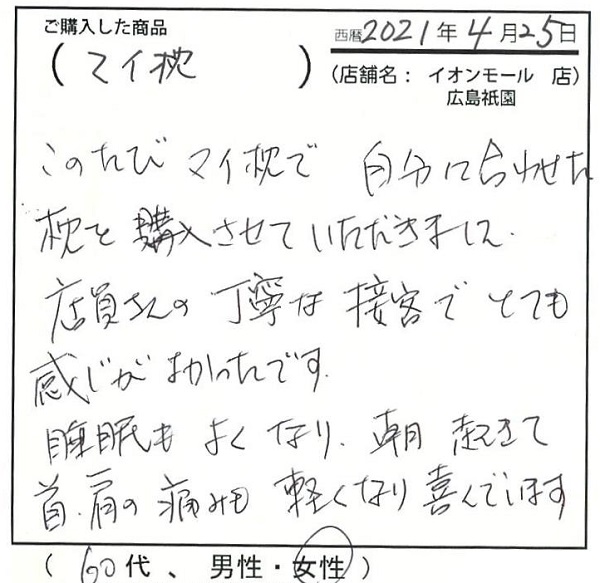 ご購入した商品
西暦2021年4月25日
(マイ枕)
(店舗名： イオンモール 店)
広島祇園
このたび マイ枕で 自分に合わせた
枕を購入させていただきました.
店員さんの 丁寧な 接客で とても
感じが よかったです.
睡眠も よくなり、朝 起きて
首.肩の 痛みも 軽くなり 喜んでいます
(60代、男性・女性)